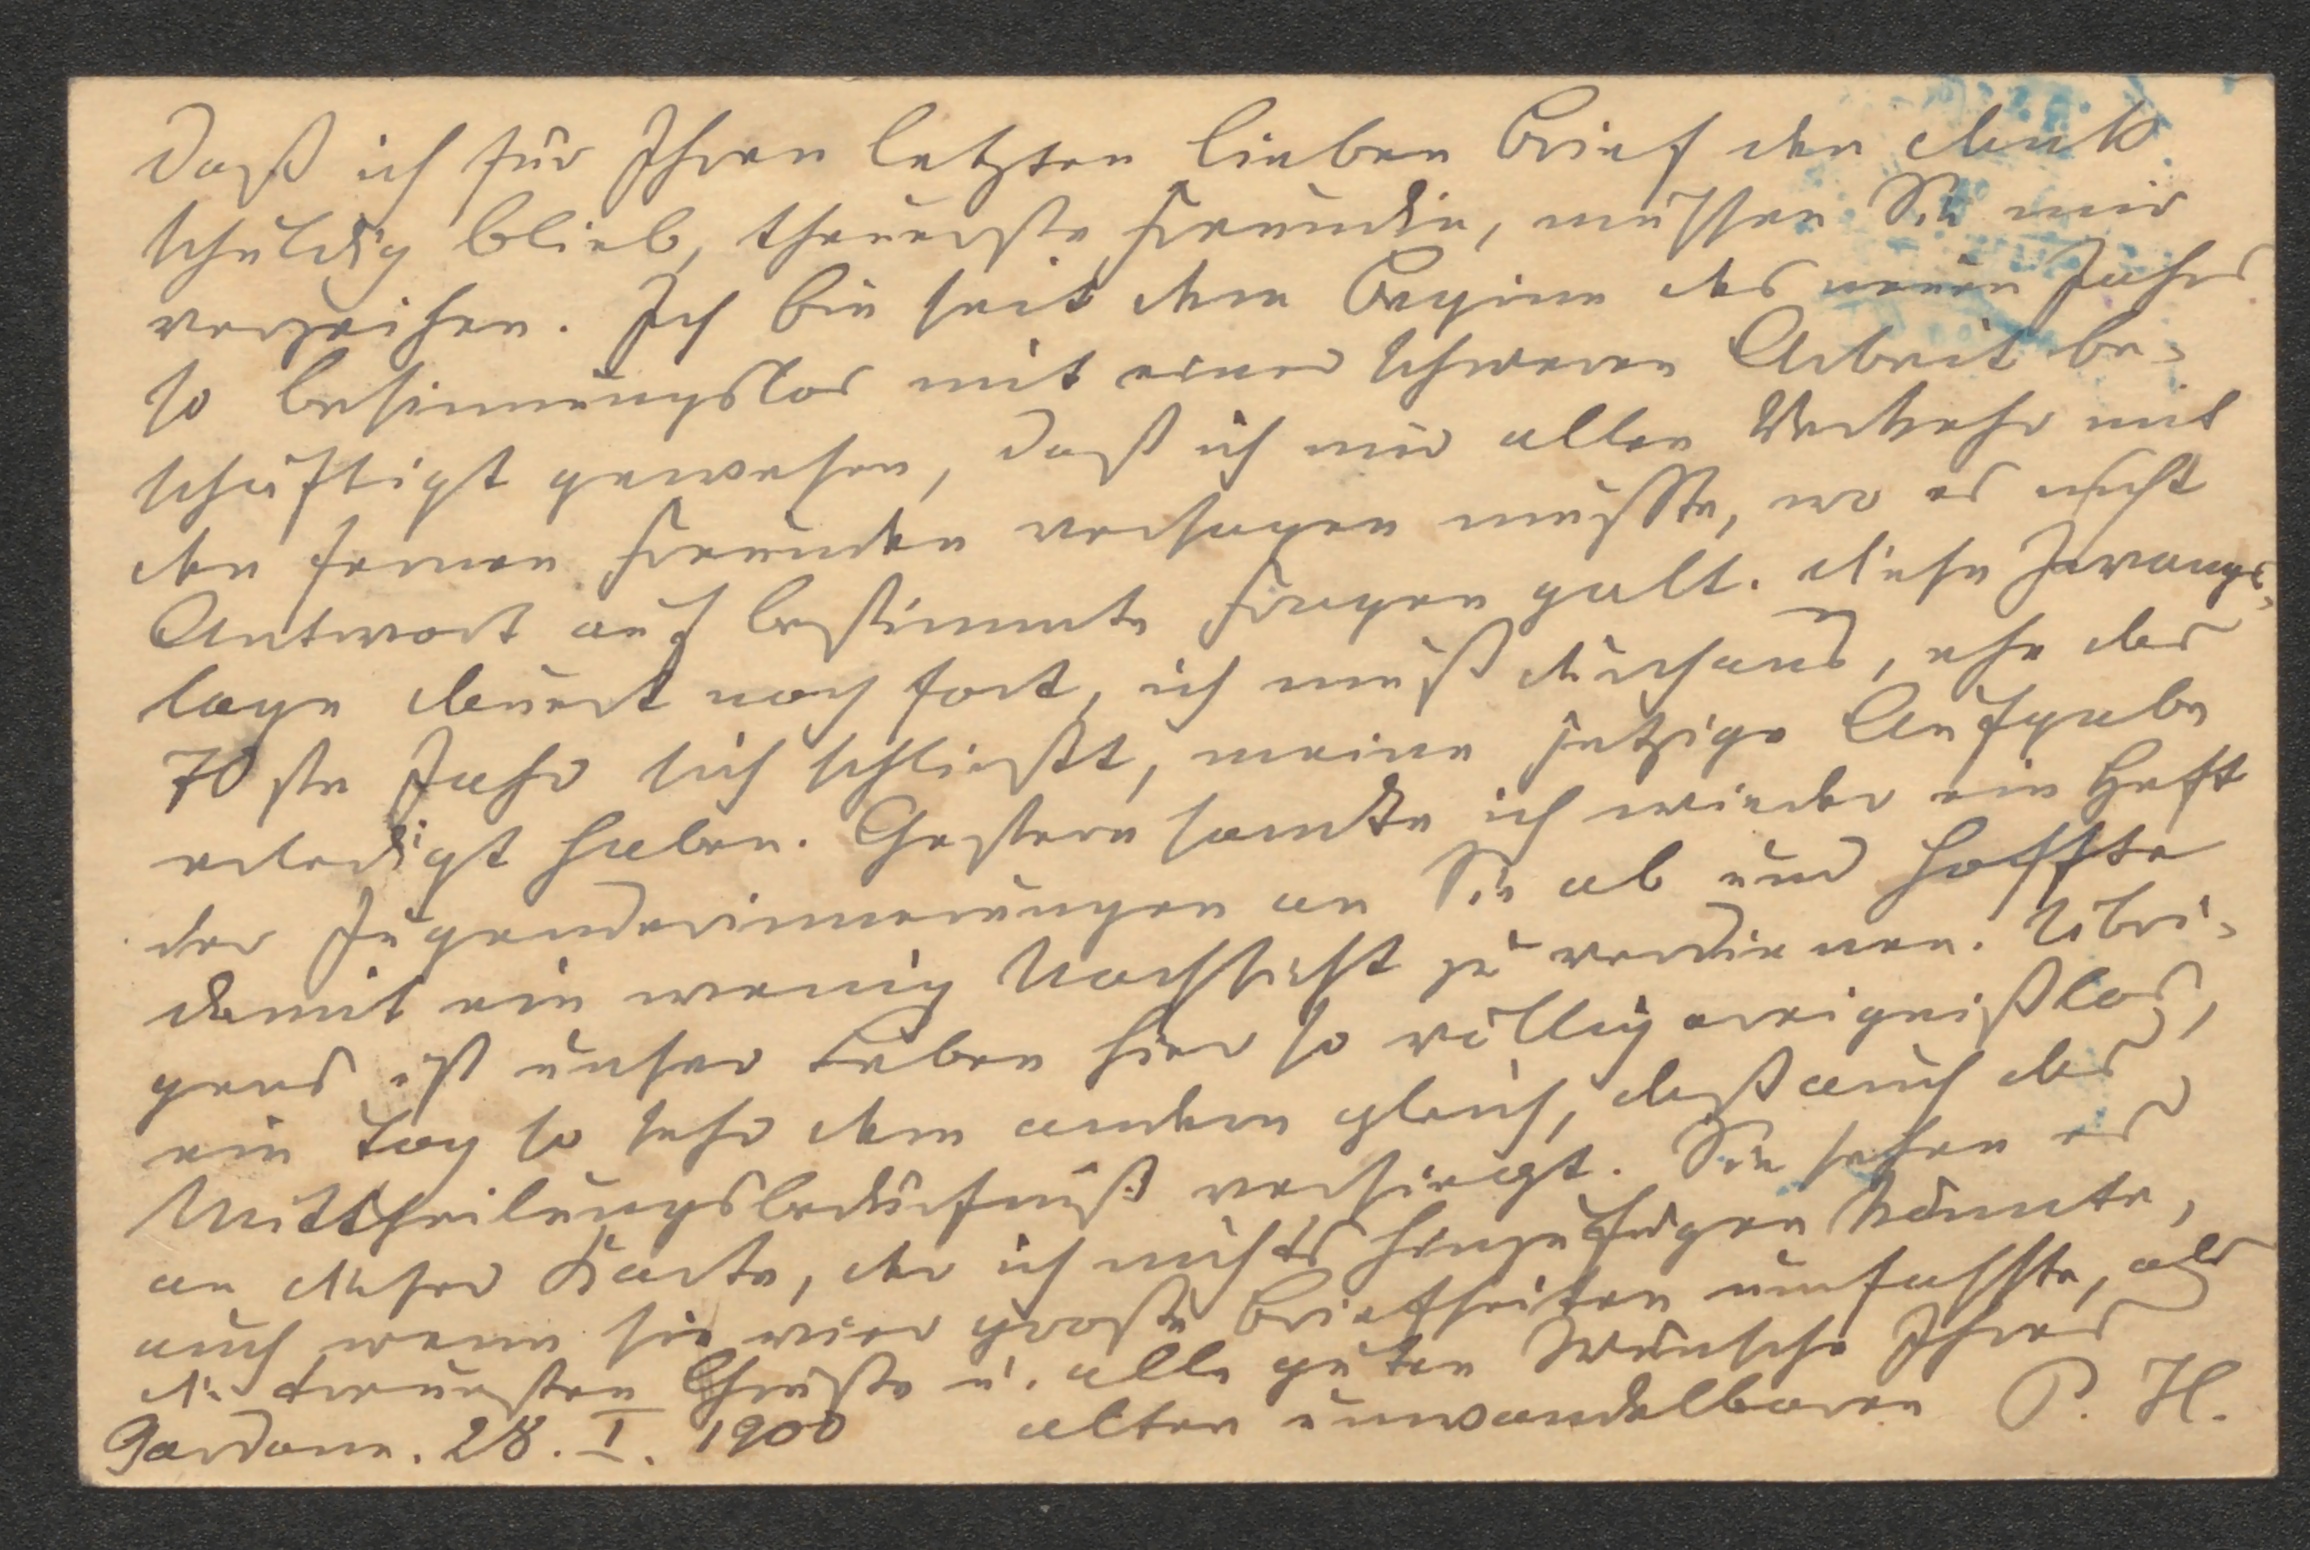 Daß ich für Ihren letzten lieben Brief den Dank
schuldig blieb, theuerste Freundin, müssen Sie mir
verzeihen. Ich bin seit dem Beginn des neuen Jahrs
so besinnungslos mit einer schweren Arbeit be-
schäftigt gewesen, daß ich mir allen Verkehr mit
den fernen Freunden versagen mußte, wo es nicht
Antwort auf bestimmte Fragen galt. Diese Zwangs-
lage dauert noch fort, ich muß durchaus, ehe das
70ste Jahr sich schließt, meine jetzige Aufgabe
erledigt haben. Gestern sandte ich wieder ein Heft
der Jugenderinnerungen an Sie ab und hoffte
damit ein wenig Nachsicht zu verdienen. Übri-
gens ist unser Leben hier so völlig ereignißlos,
ein Tag so sehr dem andern gleich, daß auch das
Mittheilungsbedürfniß versiegt. Sie sehen es
an dieser Karte, der ich nichts hinzufügen könnte,
auch wenn sie vier große Briefseiten umfaßte, als
die treuesten Grüße u. alle guten Wünsche Ihres
alten unwandelbaren P. H.
Gardone. 28. I. 1900